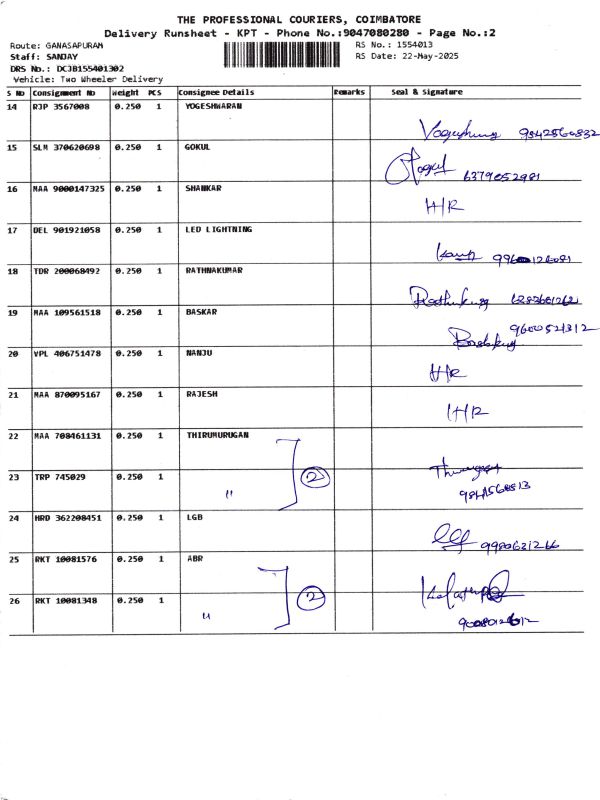 THE PROFESSIONAL COURIERS, COIMBATORE
Delivery Runsheet - KPT - Phone No.:9047080280 - Page No.:2
Route: GANASAPURAM RS No.: 1554013
Staff: SANJAY RS Date: 22-May-2025
DRS No.: DCJB155401302
Vehicle: Two Wheeler Delivery
S No Consignment No Weight PCS Consignee Details Remarks Seal & Signature
14 RJP 3567008 0.250 1 YOGESHWARAN
15 SLM 370620698 0.250 1 GOKUL
6379052981
16 MAA 9000147325 0.250 1 SHANKAR
H/R
17 DEL 901921058 0.250 1 LED LIGHTNING
18 TDR 200068492 0.250 1 RATHNAKUMAR
19 MAA 109561518 0.250 1 BASKAR
9600521312
20 VPL 406751478 0.250 1 NANJU
H/R
21 MAA 870095167 0.250 1 RAJESH
H/R
22 MAA 708461131 0.250 1 THIRUMURUGAN
2
23 TRP 745029 0.250 1 "
24 HRD 362208451 0.250 1 LGB
9980621266
25 RKT 10081576 0.250 1 ABR
2
26 RKT 10081348 0.250 1 "